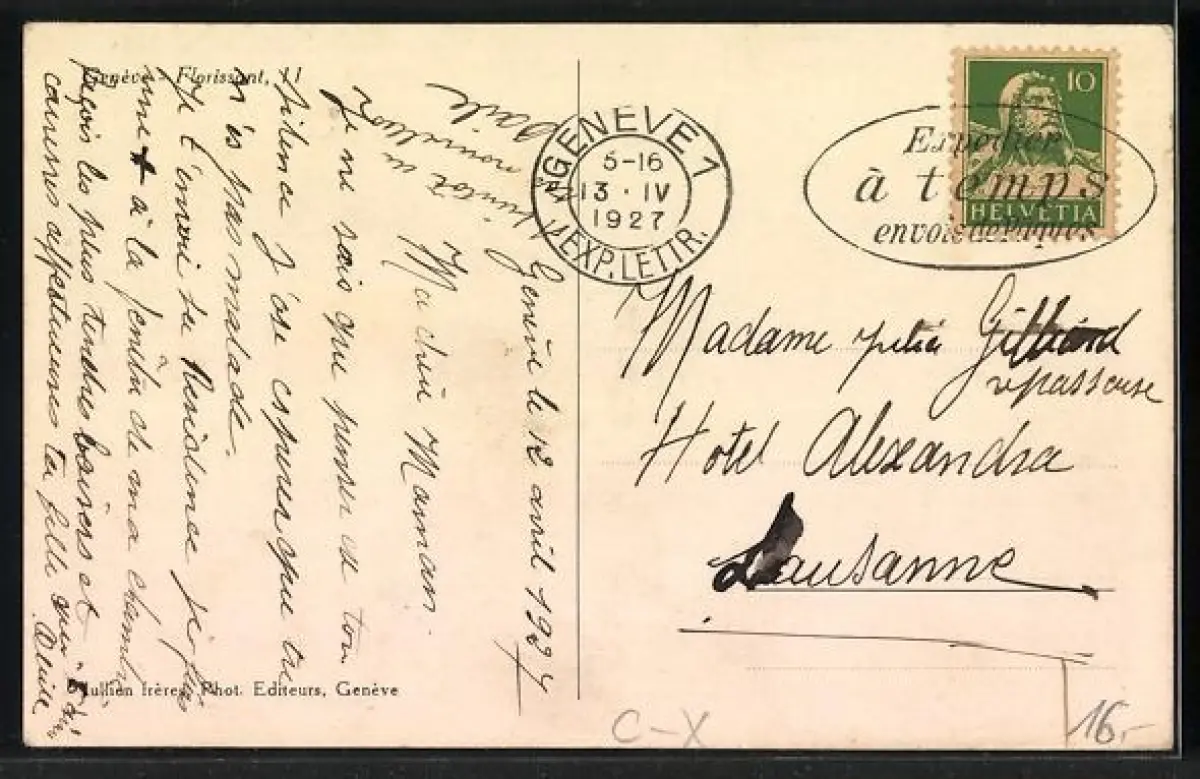 Genève - Florissant, 11
Genève le 12 avril 1927
Ma chère Maman.
Je ne sais que penser de ton
silence j'ose espérer que tu
n'es pas malade.
Je t'envoi la Résidence j'ai fais
une + à la fenêtre de ma chambre
Reçois les plus tendres baisers et
caresses affectueuses ta fille qui
Alice
bientôt
nouvelles
Jullien frères, Phot. Editeurs, Genève
GENÈVE 1
5-16
13·IV
1927
EXP. LETTR.
Expedier
à temps
envois de Pâques
10
HELVETIA
Madame Gilliard
repasseuse
Hotel Alexandra
Lausanne
C-X
16.-